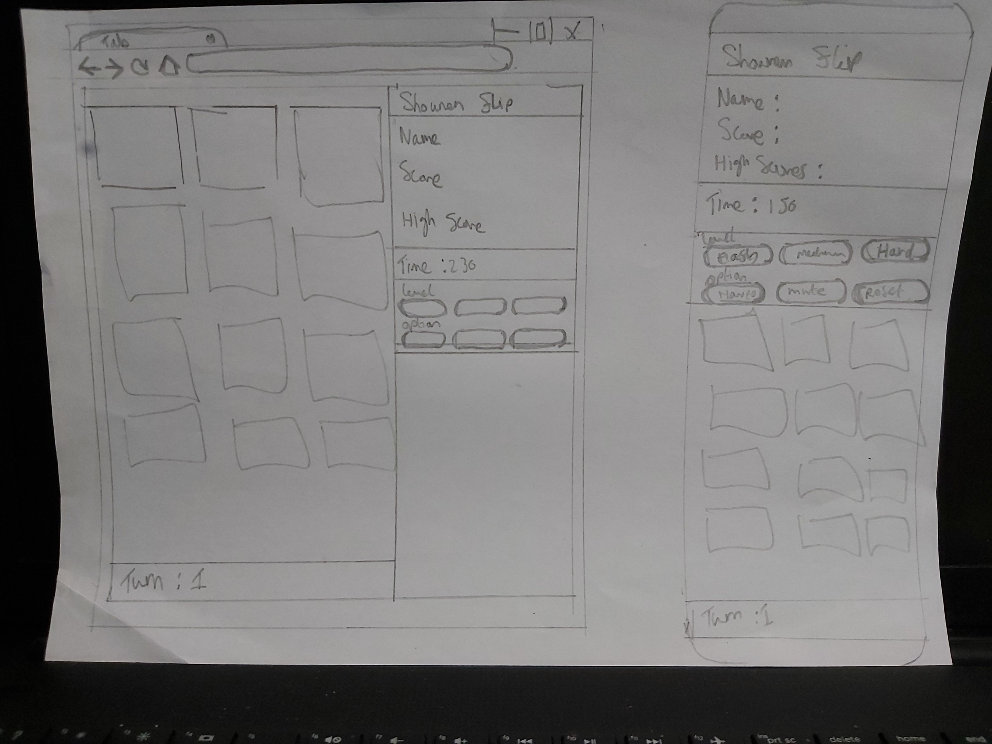 Tab
Shounen Flip
Name
Score
High Score
Time : 230
level
option
Turn : 1
Shounen Flip
Name :
Score :
High Scores :
Time : 150
level
Easy Medium Hard
option
mute Reset
Turn : 1
prt sc
delete
home
end